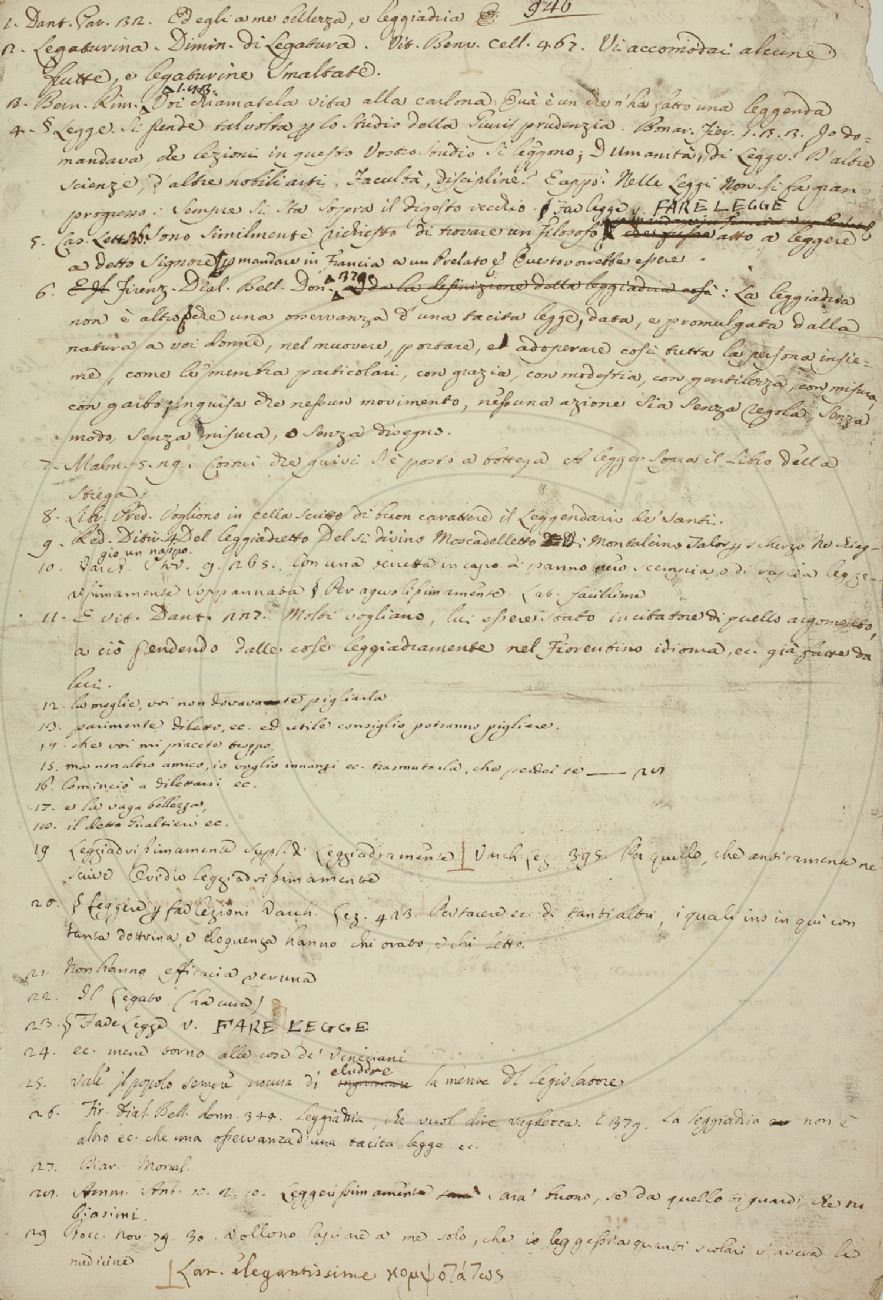 940
1. Dant. Par. 32. Ed egli a me bellezza, e leggiadria
2. Legaturina. Dimin. di Legatura. Vit. Benv. Cell. 467. Vi accomodai alcune
frutte, e legaturine smaltate.
3. Bern. Rim. 1. 113. Voi chiamatela vita alla carlona, Quà è un che n'ha fatto una leggenda
4. § Legge. Si prende talvolta p lo studio della Giurisprudenza. Buonar. Fier. 1. 3. 3. Io do-
mandava che lezioni in questo vostro studio si leggono; D'umanità, di Legge? D'altre
scienze, d'altre nobili arti, Facultà, discipline? E appo: Nelle Leggi Non si fa gran
progresso: sempre si sta sopra il digesto vecchio. § Far legge v. FARE LEGGE
5. Car. Lett. Sono similmente richiesto di trovare un Filosofo atto a leggere
a detto Signore, p mandare in Francia a un Prelato e Questo vorrebbe essere.
6. Firenz. Dial. Bell. Don. 379 da la definizione della leggiadria così: La leggiadria
non è altro che una osservanza d'una tacita legge, data, e promulgata dalla
natura a voi donne, nel muovere, portare, e adoperare così tutta la persona insie-
me, come le membra particolari, con grazia, con modestia, con gentilezza, con misura,
con garbo, in guisa che nessun movimento, nessuna azione sia senza regola, senza
modo, senza misura, o senza disegno.
7. Malm. 5. 19. Costui che quivi s'è posto a bottega A legger sopra il Libro della
strega.
8. Libr. Pred. Vogliono in cella scritto di buon carattere il Leggendario de' santi.
9. Red. Ditir. 4 Del leggiadretto Del sì divino Moscadelletto Di Montalcino Talor p scherzo Ne chieg-
gio un nappo.
10. Varch. Stor. 9. 265. Con una
11. E vit. Dant. 227. Molti vogliono, lui essere stato incitatore di quello argomento,
a ciò prendendo dalle cose leggiadramente nel Fiorentino idioma, ec. già fatte da
lui.
12. la moglie, voi non dovavate pigliarla
13. parimente diletto, ec. ed utile consiglio potranno pigliare.
14. che voi mi piacete troppo.
15. ma un altro amico, io voglio innanzi ec. trasmutarla, che perder te
16. Cominciò a dilettarsi ec.
17. e la vaga bellezza,
18. il detto Gualtieri ec.
19 Leggiadrissimamente Supl. di Leggiadramente Varch Lez. 395. Per quello, che anticamente ne
scrive Ovidio leggiadrissimamente
20. § Leggere p far lezioni Varch. Lez. 423. Per tacere ec. di tanti altri, i quali ino in qui con
tanta dottrina, e eloquenza hanno chi orato, e chi letto.
21. Non hanno efficacia veruna
22. Il Legato (ha cura)
23. § Fare Legge v. FARE LEGGE
24. ec. mene torno alle cose de' Veneziani
25. vale il popolo sempre procura di eludere la mente del legislatore
26. Fir. dial. Bell. donn. 344. Leggiadria, che vuol dire vaghezza. E 379. La leggiadria non è
altro ec. che una osservanza d'una tacita legge ec.
27. Giar. Moral.
28. Amm. Ant. Leggerissimamente sarà buono, se da quello ti guardi, che tu
biasimi.
29 Bocc. Nov. 79. 30. Vollono lasciare a me solo, che io leggessi a quanti scolari v'aveva le
medicine
Lat. elegantissime κομψοτάτως